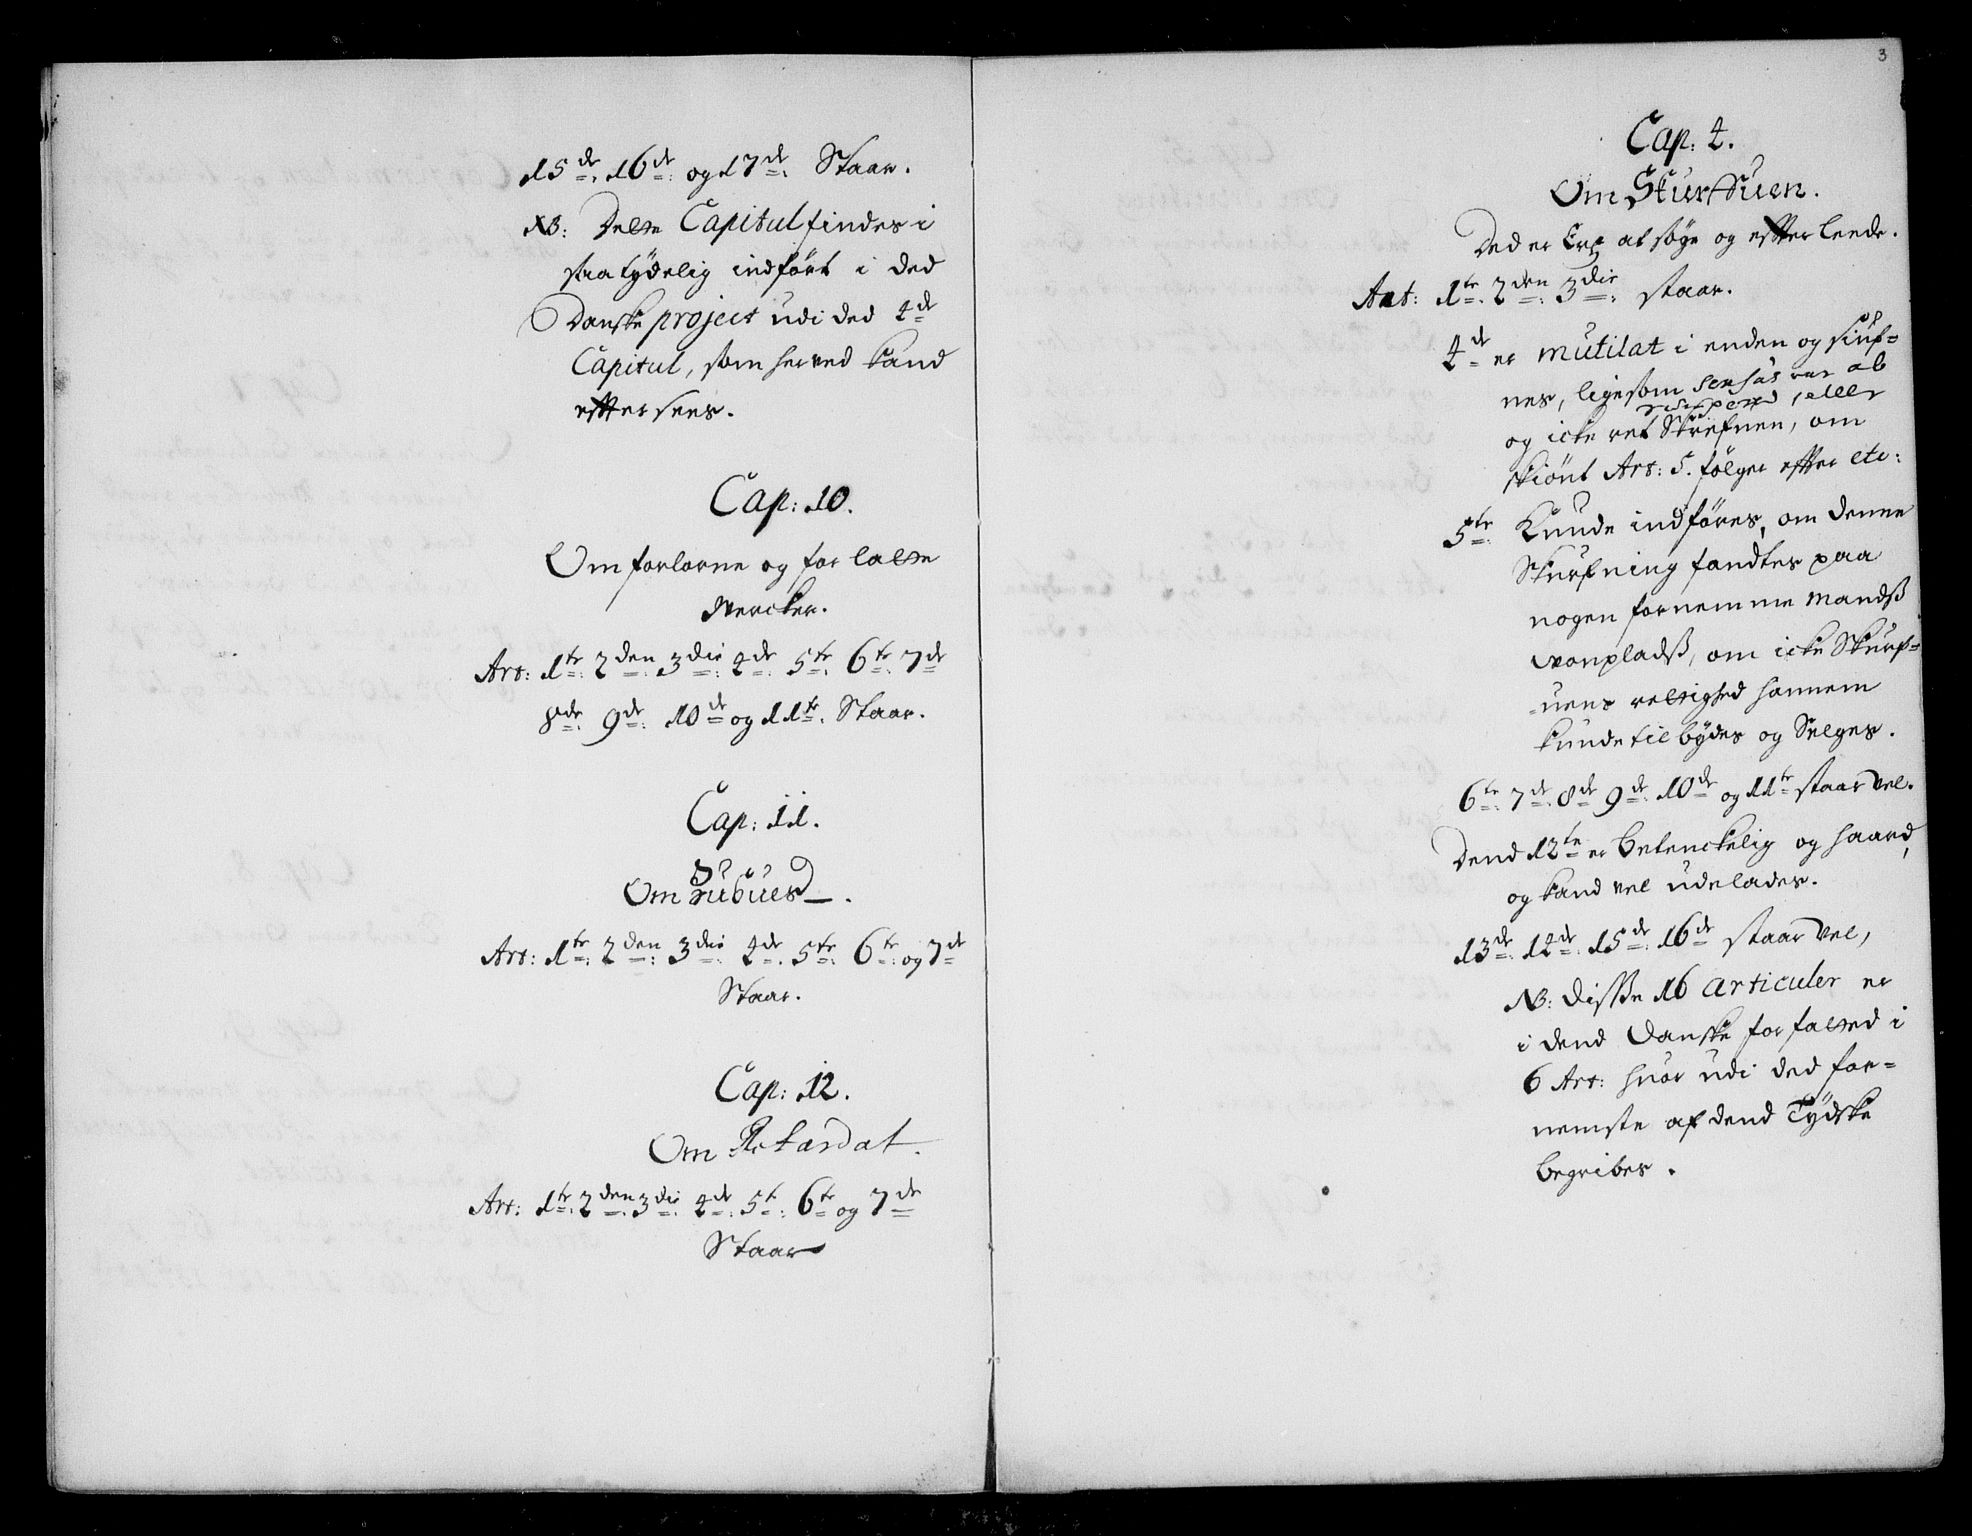 15de. 16de. og 17de. Staar.
NB: Dette Capitul findes i
saa tÿdelig indført i ded
Danske project udi ded 4de
Capitul, som herved kand
effter sees.
Cap: 10.
Om forlorne og forlatte
Wercker.
Art: 1te. 2den. 3die. 4de. 5te. 6te. 7de
8de. 9de. 10de og 11te. Staar.
Cap: 11.
Om
Art: 1te. 2den. 3die. 4de. 5te. 6te. og 7de
Staar.
Cap: 12.
Om Retardat.
Art: 1te. 2den. 3die. 4de. 5te. 6te og 7de
Staar
3
Cap: 4.
Om
Ded er Ertz at søge og effter leede.
Art: 1te. 2den. 3die. staar.
4de er mutilat i enden og
nes, ligesom sensus var ab
og icke ret Skrefven, om
skiønt Art: 5. følger effter etc:
5te. Kunde indføres, om denne
Skurfning fandtes paa
nogen fornemme Mandß
vonpladß, om icke Skurf-
uens rettighed hannem
kunde tilbÿdes og Selges.
6te. 7de. 8de 9de. 10de og 11te staar vel.
Dend 12te er betenckelig og haard,
og kand vel udelades.
13de. 14de. 15de. 16de staar vel,
NB: disse 16 articuler er
i dend Danske forfatted i
6 Art: huor udi ded for-
nemste af dend Tÿdske
begribes.